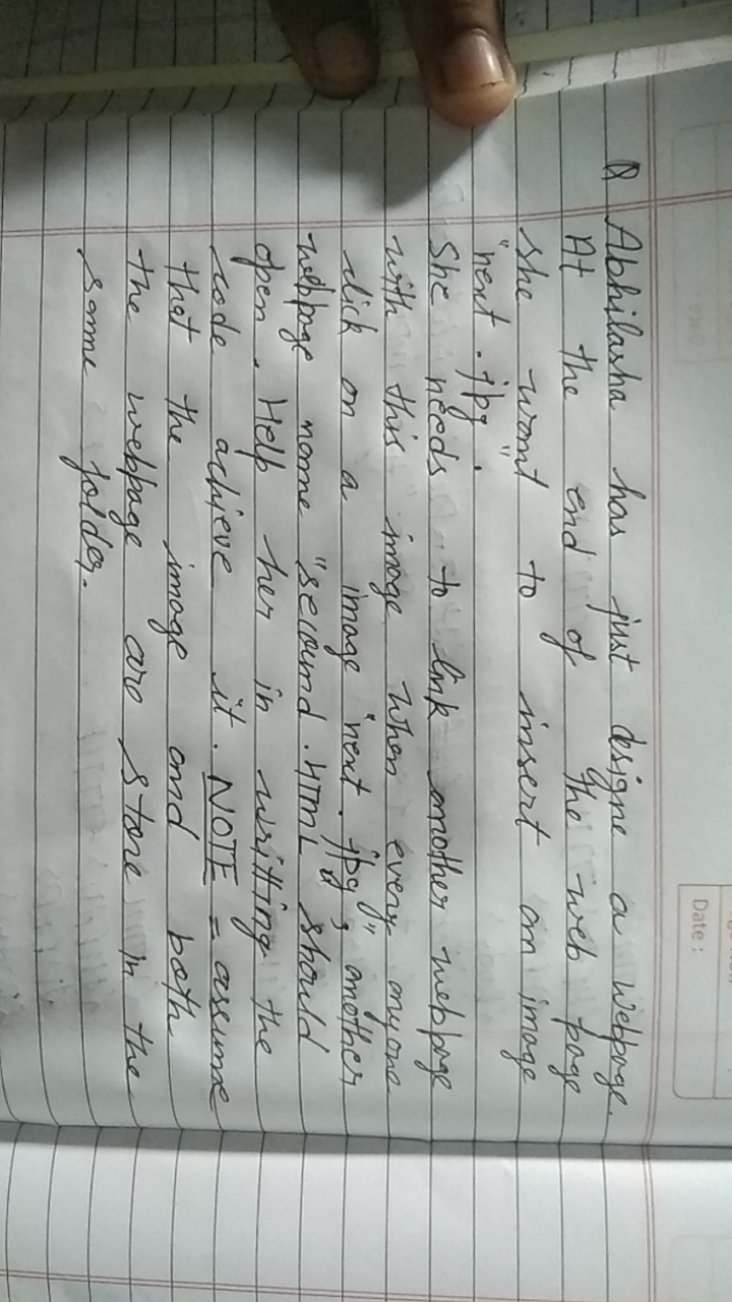 Date :
Q Abhilasha has just designe a webpage.
At the end of the web page
she want to insert an image
"next.jpg".
She needs to link another webpage
with this image when every anyone
click on a image "next.jpg", another
webpage name "secound.HTML should
open. Help her in writting the
code achieve it. NOTE = assume
that the image and both
the webpage are store in the
same folder.